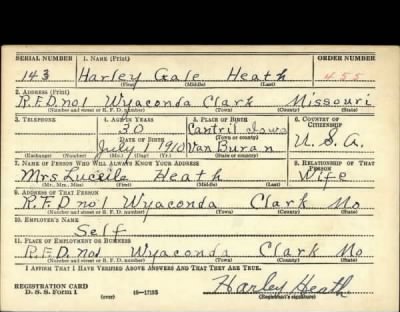 SERIAL NUMBER 1. NAME (Print) ORDER NUMBER
143 Harley Gale Heath 455
(First) (Middle) (Last)
2. ADDRESS (Print)
R.F.D. no 1 Wyaconda Clark Missouri
(Number and street or R. F. D. number) (Town) (County) (State)
3. TELEPHONE 4. AGE IN YEARS 5. PLACE OF BIRTH 6. COUNTRY OF CITIZENSHIP
30 Cantril Iowa
DATE OF BIRTH (Town or county)
July 1 1910 Van Buran U.S.A.
(Exchange) (Number) (Mo.) (Day) (Yr.) (State or country)
7. NAME OF PERSON WHO WILL ALWAYS KNOW YOUR ADDRESS 8. RELATIONSHIP OF THAT PERSON
Mrs. Heath Wife
(Mr., Mrs., Miss) (First) (Middle) (Last)
9. ADDRESS OF THAT PERSON
R.F.D. no 1 Wyaconda Clark Mo
(Number and street or R. F. D. number) (Town) (County) (State)
10. EMPLOYER'S NAME
Self
11. PLACE OF EMPLOYMENT OR BUSINESS
R.F.D. no 1 Wyaconda Clark Mo
(Number and street or R. F. D. number) (Town) (County) (State)
I AFFIRM THAT I HAVE VERIFIED ABOVE ANSWERS AND THAT THEY ARE TRUE.
REGISTRATION CARD
D. S. S. Form 1 (over) 16—17105 Harley Heath
(Registrant's signature)